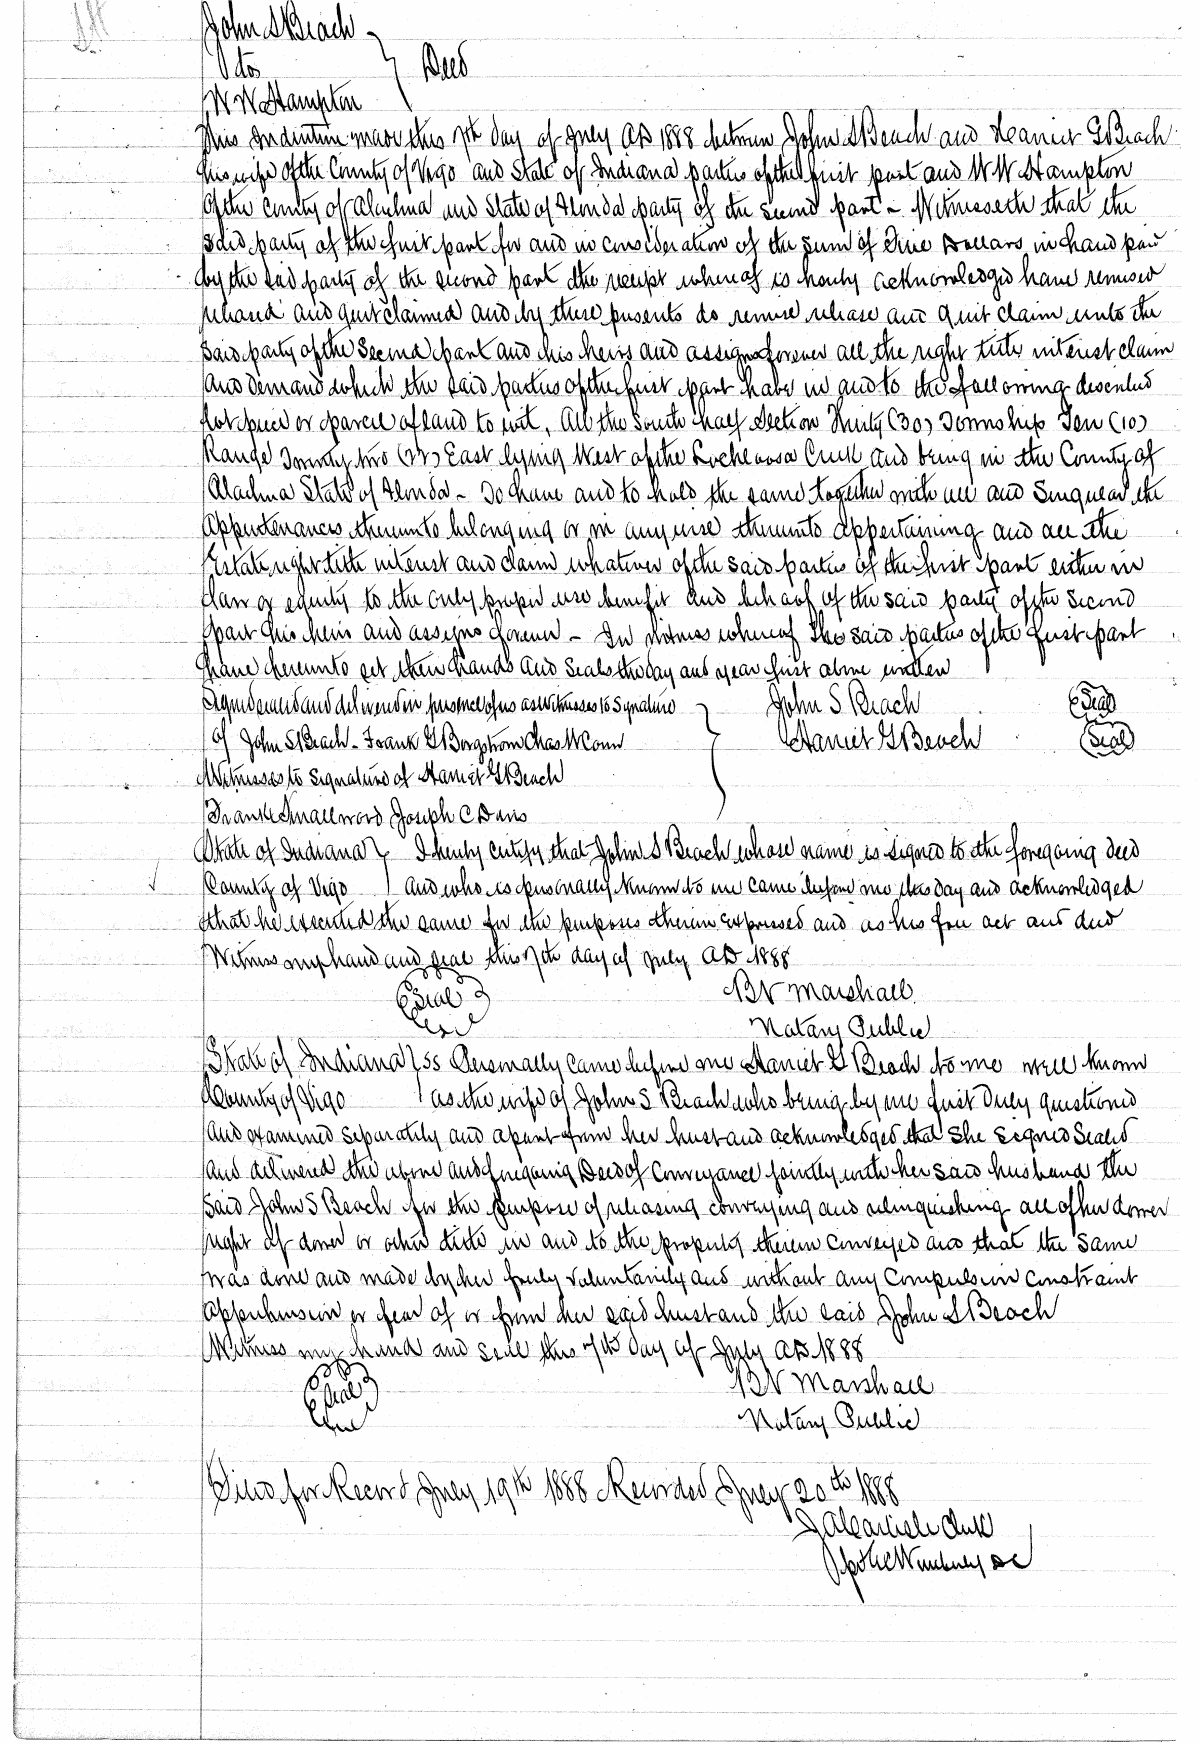 John S Beach
to
Deed
W W Hampton
This Indenture made this 7th day of July AD 1888 between John S Beach and Harriet G Beach
his wife of the County of Vigo and State of Indiana parties of the first part and W W Hampton
of the County of Alachua and State of Florida party of the second part – Witnesseth that the
said party of the first part for and in consideration of the sum of Five Dollars in hand paid
by the said party of the second part the receipt whereof is hereby acknowledged have remised
released and quit claimed and by these presents do remise release and quit claim unto the
said party of the second part and his heirs and assigns forever all the right title interest claim
and demand which the said parties of the first part have in and to the following described
lot piece or parcel of land to wit, All the South half Section Thirty (30) Township Ten (10)
Range Twenty two (22) East lying West of the Lochloosa Creek and being in the County of
Alachua State of Florida – To have and to hold the same together with all and Singular the
appurtenances thereunto belonging or in anywise thereunto appertaining and all the
Estate right title interest and claim whatever of the said parties of the first part either in
law or equity to the only proper use benefit and behoof of the said party of the second
part his heirs and assigns forever – In Witness whereof the said parties of the first part
have hereunto set their hands and seals the day and year first above written
Signed sealed and delivered in presence of us as Witnesses to Signature John S Beach (Seal)
of John S Beach – Frank G Borgstrom Chas W Conn Harriet G Beach (Seal)
Witnesses to Signature of Harriet G Beach
Frank Smallwood Joseph C Davis
State of Indiana I hereby certify that John S Beach whose name is signed to the foregoing deed
County of Vigo and who is personally known to me came before me this day and acknowledged
that he executed the same for the purposes therein expressed and as his free act and deed
Witness my hand and seal this 7th day of July AD 1888
Seal B V Marshall
Notary Public
State of Indiana ss Personally came before me Harriet G Beach to me well known
County of Vigo as the wife of John S Beach who being by me first duly questioned
and examined separately and apart from her husband acknowledged that she signed sealed
and delivered the above and foregoing Deed of Conveyance jointly with her said husband the
said John S Beach for the purpose of releasing conveying and relinquishing all of her dower
right of dower or other title in and to the property therein conveyed and that the same
was done and made by her freely voluntarily and without any compulsion constraint
apprehension or fear of or from her said husband the said John S Beach
Witness my hand and seal this 7th day of July AD 1888
Seal B V Marshall
Notary Public
Filed for Record July 19th 1888 Recorded July 20th 1888
J A Carlisle Clerk
DC